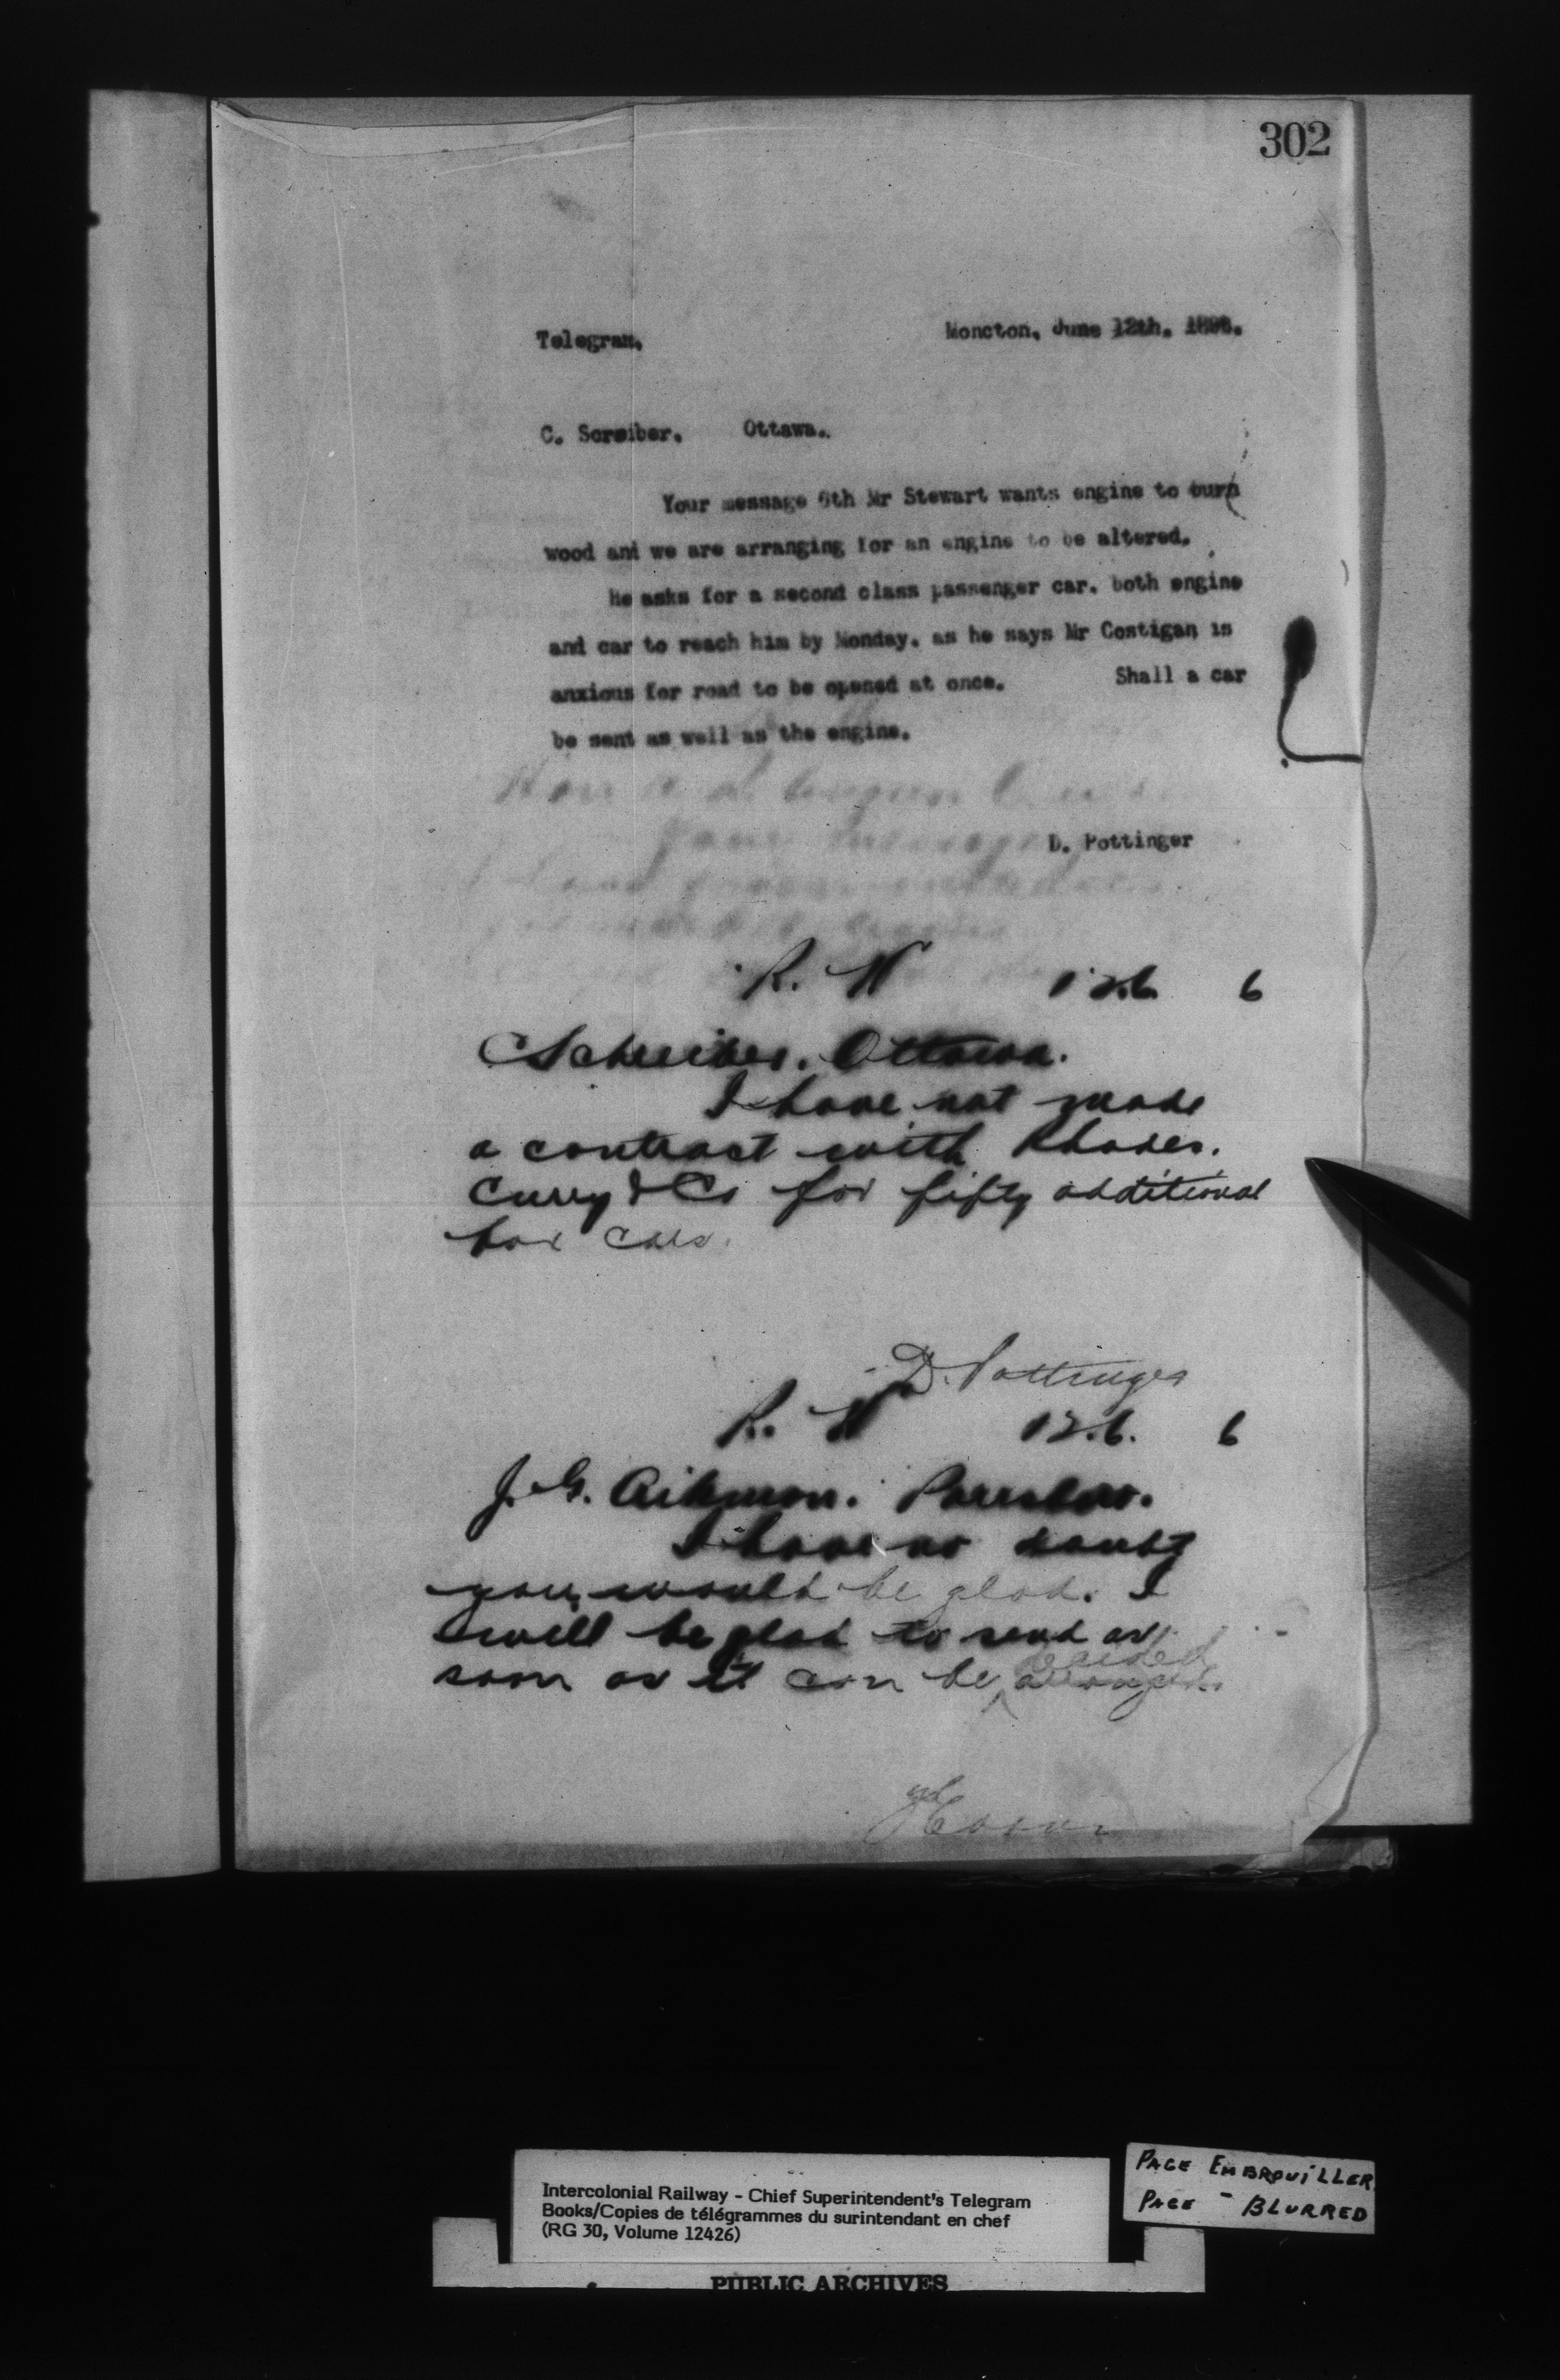 302
Telegram. Moncton, June 12th. 1896.
C. Screiber. Ottawa.
Your message 6th Mr Stewart wants engine to burn
wood and we are arranging for an engine to be altered.
He asks for a second class passenger car. both engine
and car to reach him by Monday. as he says Mr Costigan is
anxious for road to be opened at once. Shall a car
be sent as well as the engine.
D. Pottinger
R. W 12.6. 6
C Schreiber. Ottawa.
I have not made
a contract with Rhodes.
Curry & Co for fifty additional
box cars.
D. Pottinger
R. W 12.6. 6
J. G. Aikman.
I have no doubt
you would be glad. I
will be glad to send as
decided
soon as it can be arranged.
Intercolonial Railway - Chief Superintendent's Telegram
Books/Copies de télégrammes du surintendant en chef
(RG 30, Volume 12426)
PAGE EMBROUILLER
PAGE - BLURRED
PUBLIC ARCHIVES